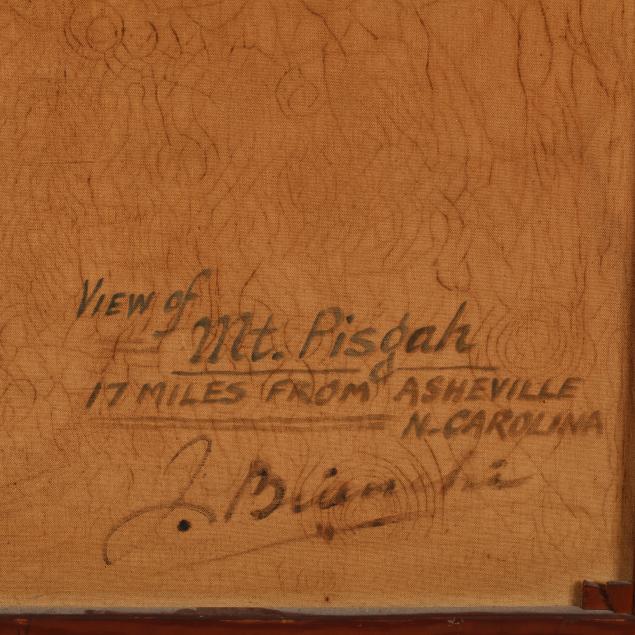 View of
Mt. Pisgah
17 MILES FROM ASHEVILLE
N-CAROLINA
J. Bianchi